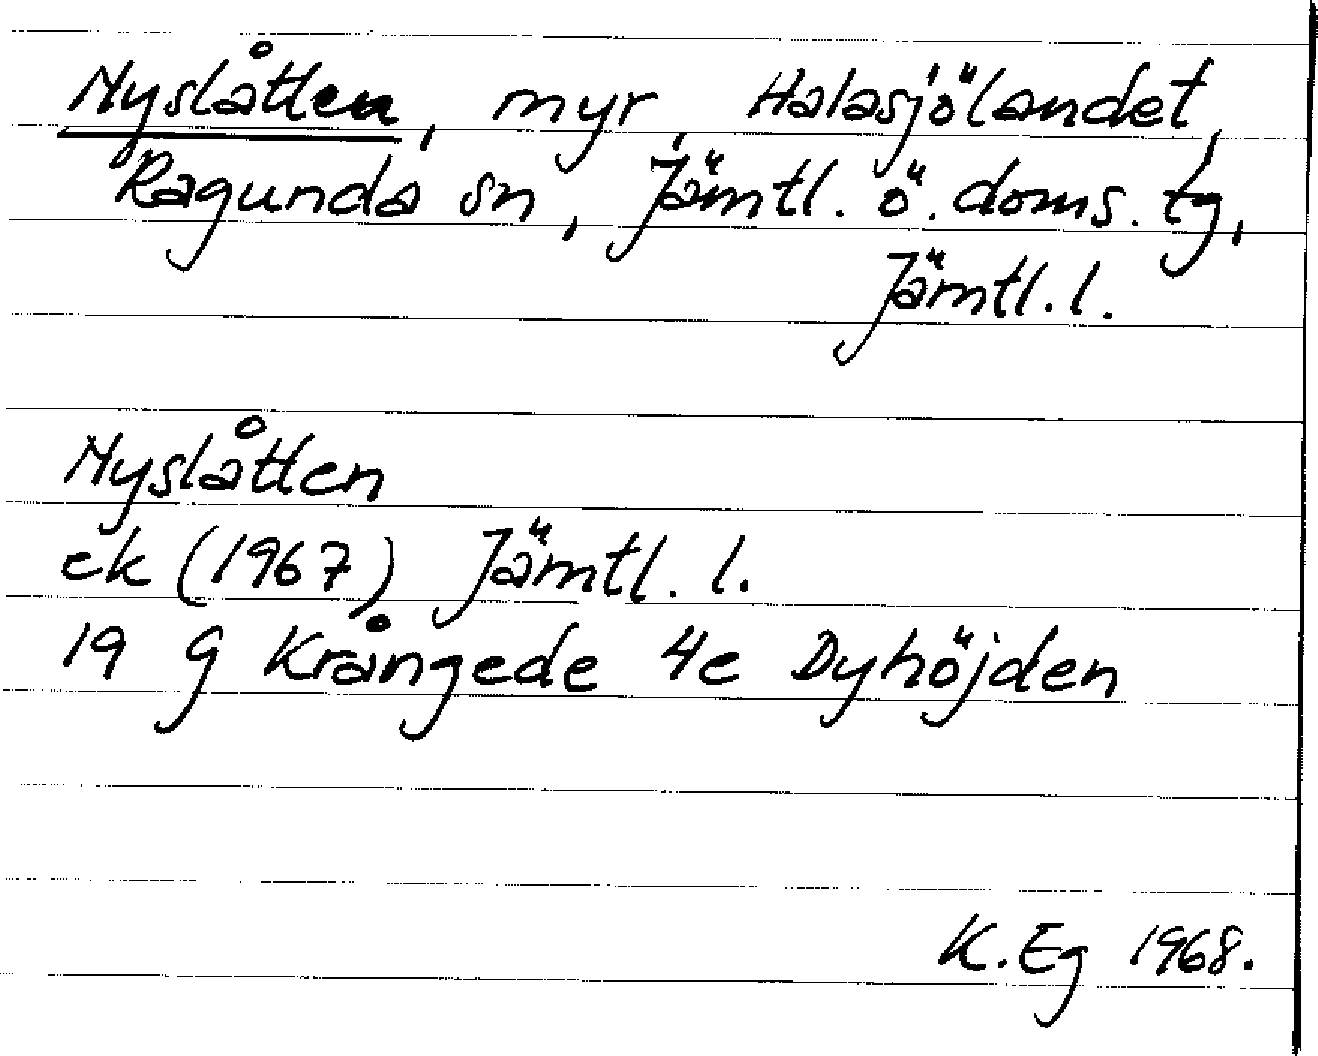 Nyslåtten, myr, Halasjölandet,
Ragunda sn, Jämtl. ö. doms. tg,
Jämtl. l.
Nyslåtten
ek (1967) Jämtl. l.
19 G Krångede 4e Dyhöjden
K. Eg 1968.